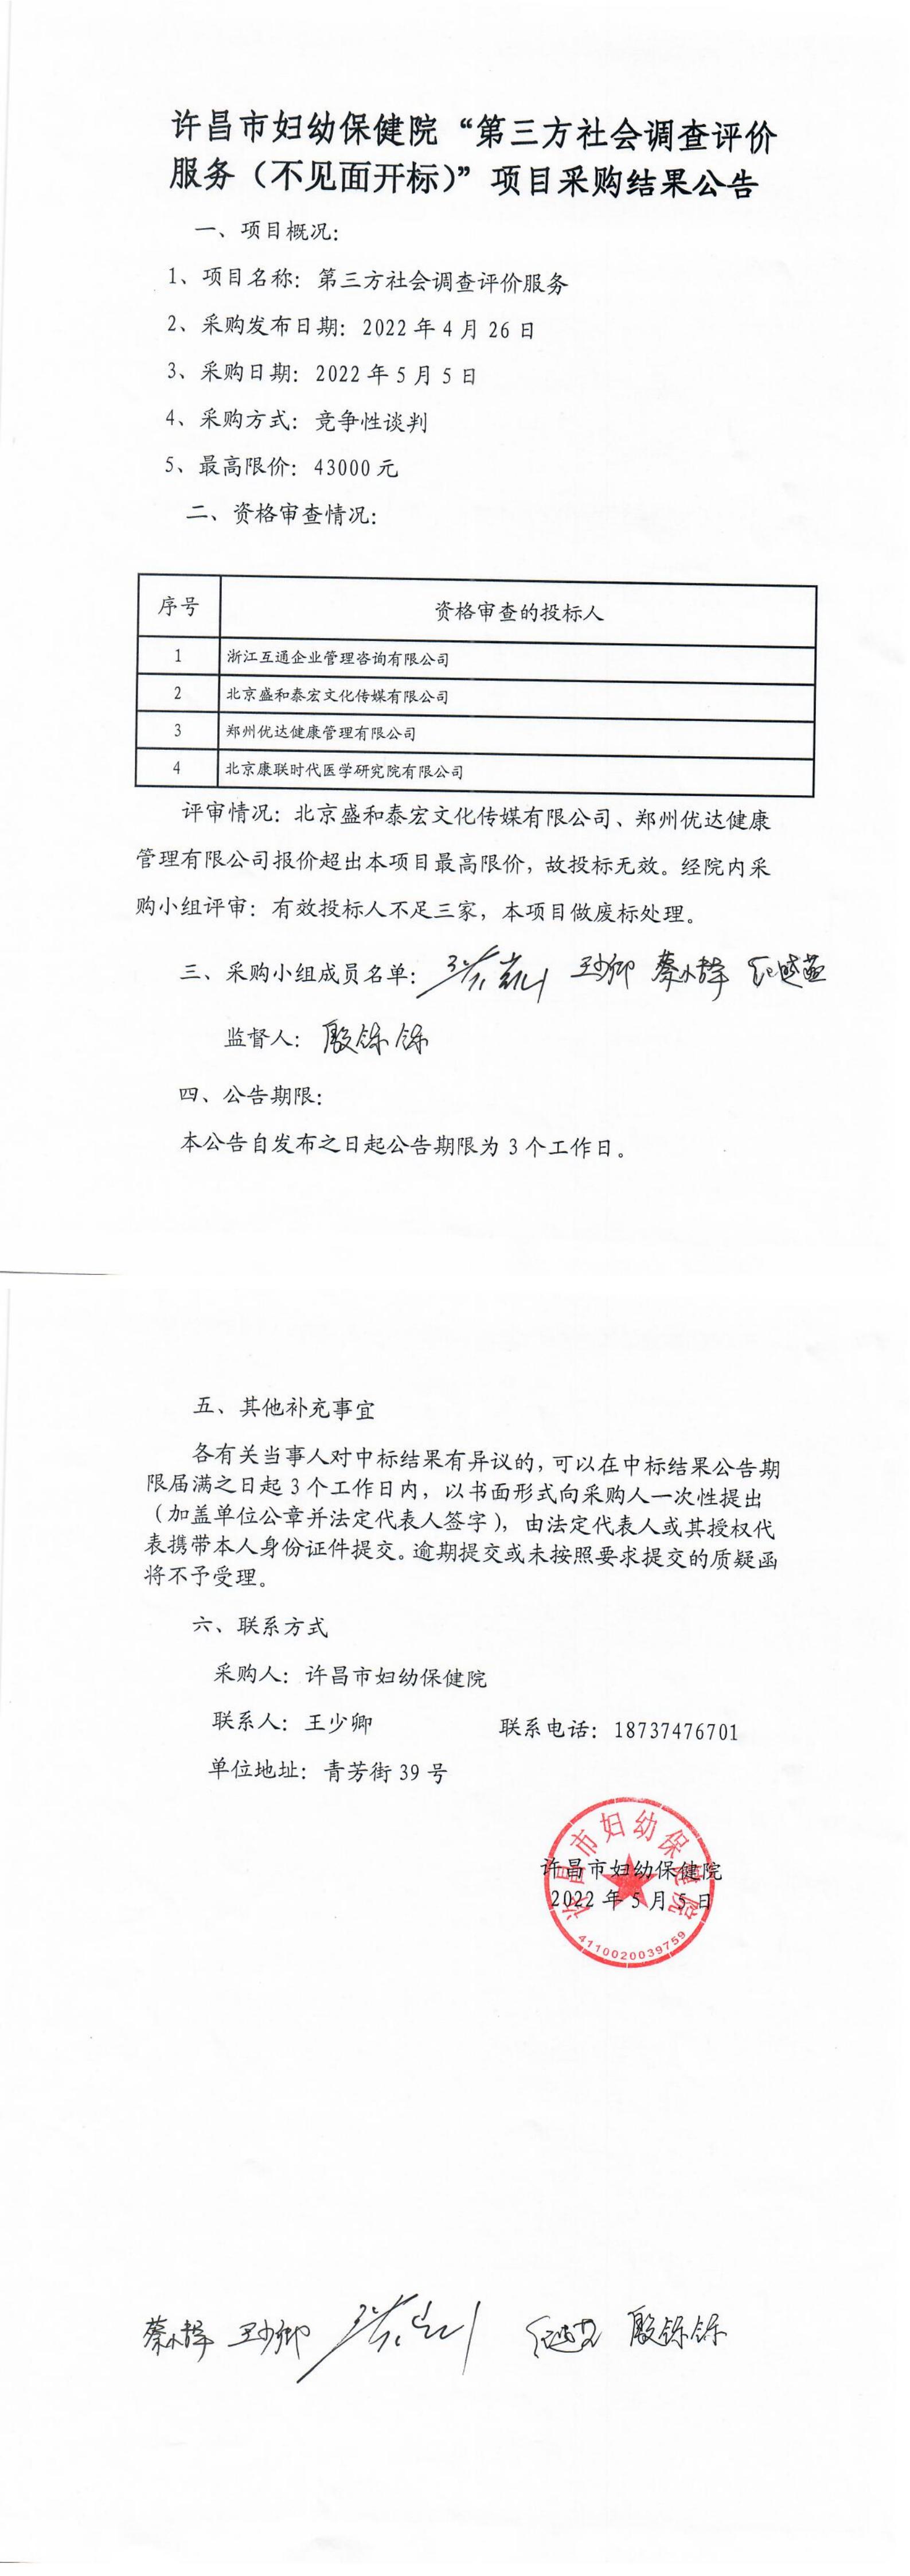 许昌市妇幼保健院“第三方社会调查评价
服务（不见面开标）”项目采购结果公告
一、项目概况：
1、项目名称：第三方社会调查评价服务
2、采购发布日期：2022年4月26日
3、采购日期：2022年5月5日
4、采购方式：竞争性谈判
5、最高限价：43000元
二、资格审查情况：
序号 资格审查的投标人
1 浙江互通企业管理咨询有限公司
2 北京盛和泰宏文化传媒有限公司
3 郑州优达健康管理有限公司
4 北京康联时代医学研究院有限公司
评审情况：北京盛和泰宏文化传媒有限公司、郑州优达健康
管理有限公司报价超出本项目最高限价，故投标无效。经院内采
购小组评审：有效投标人不足三家，本项目做废标处理。
三、采购小组成员名单： 王少卿
监督人：殷铄铄
四、公告期限：
本公告自发布之日起公告期限为3个工作日。
五、其他补充事宜
各有关当事人对中标结果有异议的，可以在中标结果公告期
限届满之日起3个工作日内，以书面形式向采购人一次性提出
（加盖单位公章并法定代表人签字），由法定代表人或其授权代
表携带本人身份证件提交。逾期提交或未按照要求提交的质疑函
将不予受理。
六、联系方式
采购人：许昌市妇幼保健院
联系人：王少卿 联系电话：18737476701
单位地址：青芳街39号
许昌市妇幼保健院
许昌市妇幼保健院
2022年5月5日
4110020039759
王少卿 殷铄铄